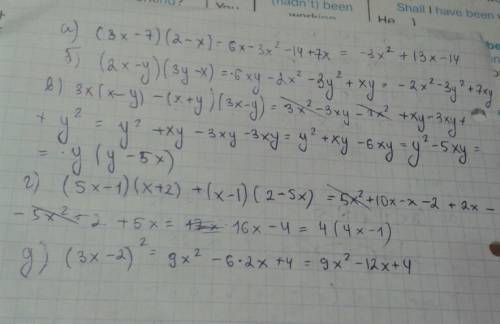 (hadn't) been
Shall I have been
а) (3x-7)(2-x) - 6x - 3x² - 14 + 7x = -3x² + 13x - 14
б) (2x-y)(3y-x) = 6xy - 2x² - 3y² + xy = -2x² - 3y² + 7xy
в) 3x(x-y) - (x+y)(3x-y) = 3x² - 3xy - 3x² + xy - 3xy +
+ y² = y² + xy - 3xy - 3xy = y² + xy - 6xy = y² - 5xy =
= y(y-5x)
г) (5x-1)(x+2) + (x-1)(2-5x) = 5x² + 10x - x - 2 + 2x -
- 5x² - 2 + 5x = 16x - 4 = 4(4x-1)
д) (3x-2)² = 9x² - 6·2x + 4 = 9x² - 12x + 4